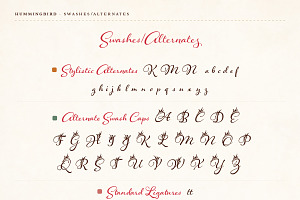 HUMMINGBIRD · SWASHES/ALTERNATES
Swashes/Alternates
Stylistic Alternates K M N a b c d e f
g h i j k l m n o p q r s u x y z
Alternate Swash Caps A B C D E
F G H I J K L M N O P
Q R S T U V W X Y Z
Standard Ligatures tt